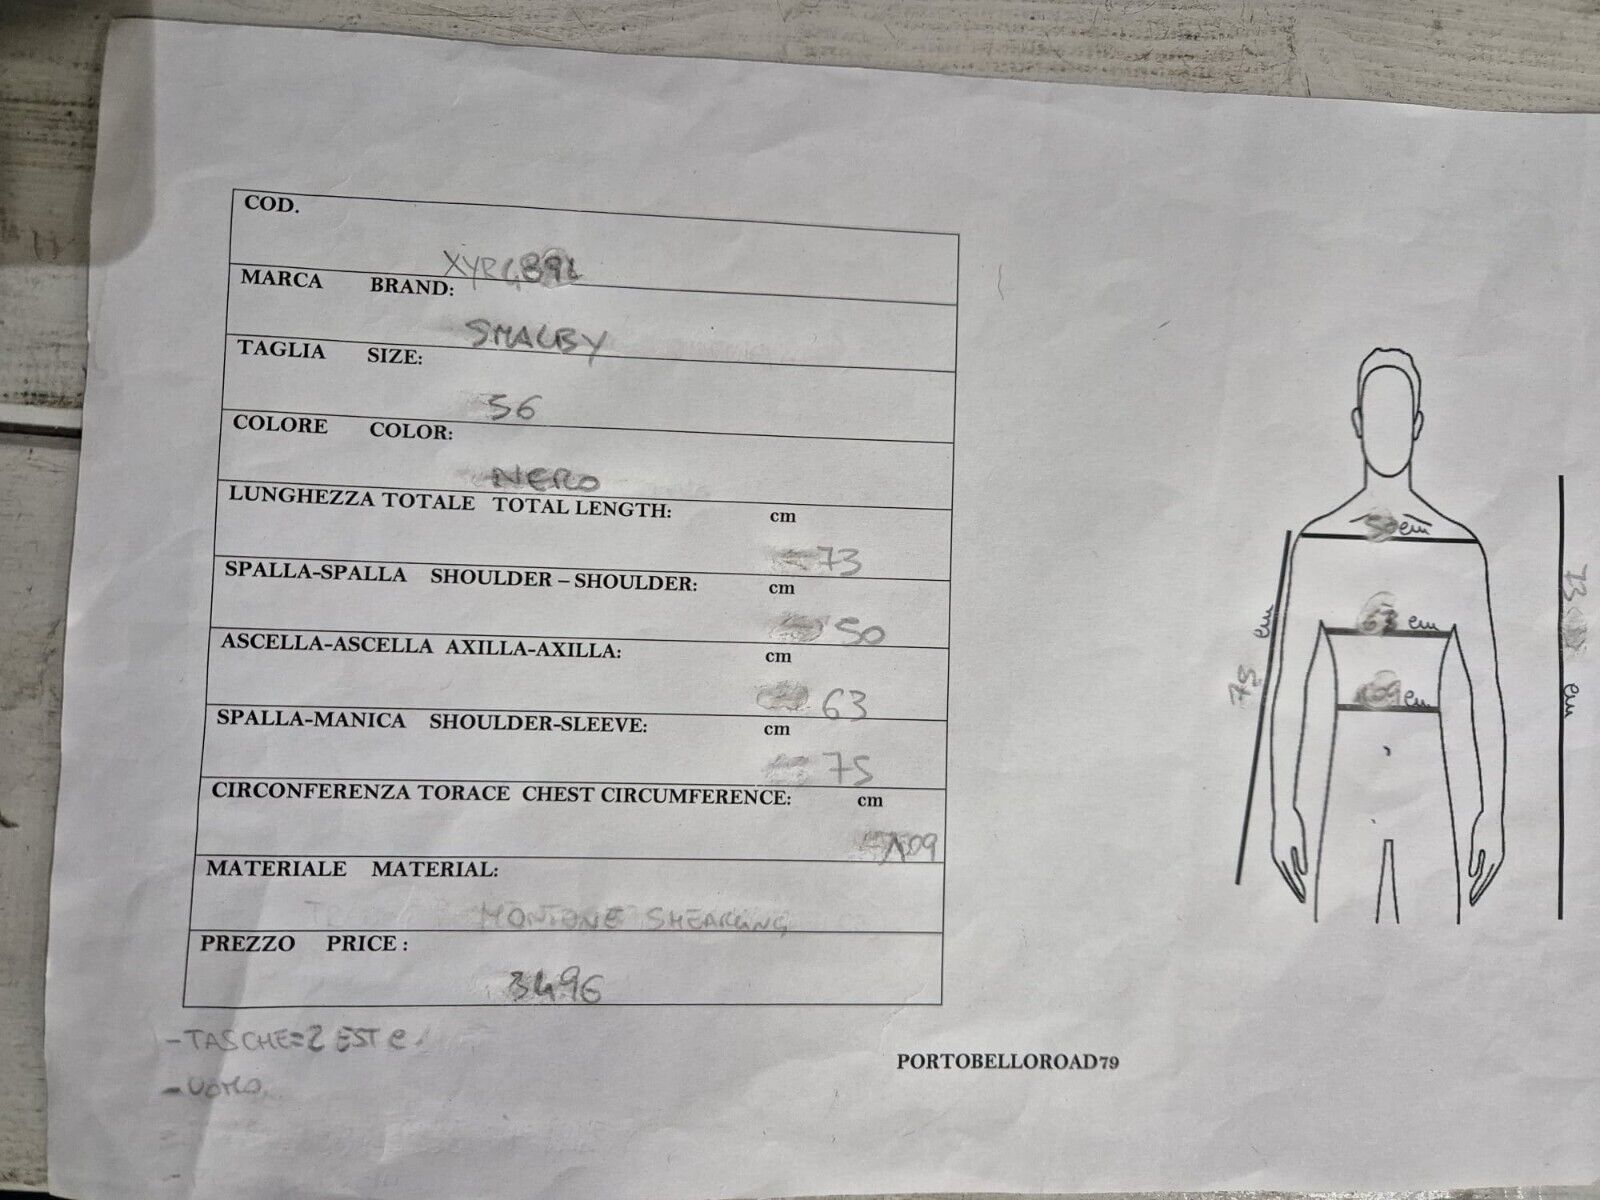 COD.
MARCA BRAND:
SMALBY
TAGLIA SIZE:
56
COLORE COLOR:
NERO
LUNGHEZZA TOTALE TOTAL LENGTH: cm
73
SPALLA-SPALLA SHOULDER – SHOULDER: cm
50
ASCELLA-ASCELLA AXILLA-AXILLA: cm
63
SPALLA-MANICA SHOULDER-SLEEVE: cm
75
CIRCONFERENZA TORACE CHEST CIRCUMFERENCE: cm
109
MATERIALE MATERIAL:
MONTONE SHEARLING
PREZZO PRICE :
3496
-TASCHE=2 EST e
-UOMO
PORTOBELLOROAD79
50 cm
63 cm
109 cm
75 cm
73 cm